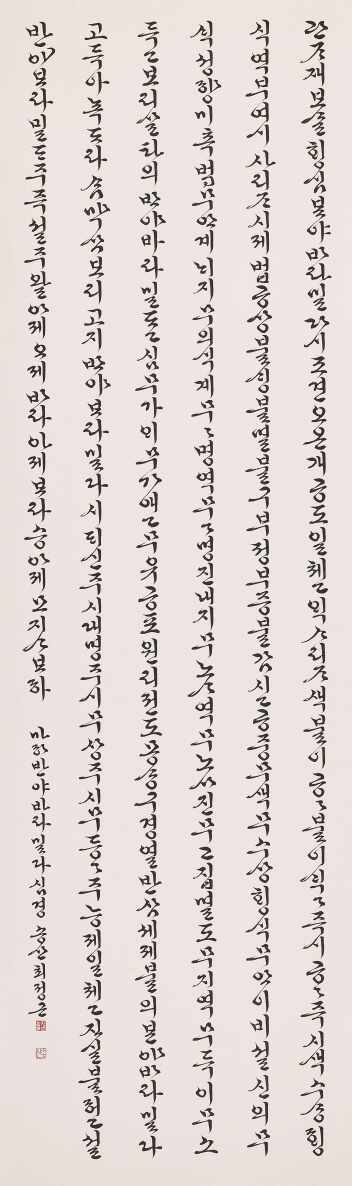 관자재보살행심반야바라밀다시조견오온개공도일체고액사리자색불이공〻불이색〻즉시공〻즉시색수상행
식역부여시사리자시제법공상불생불멸불구부정부증불감시고공중무색무수상행식무안이비설신의무
색성향미촉법무안계내지무의식계무〻명역무〻명진내지무노사역무노사진무고집멸도무지역무득이무소
득고보리살타의반야바라밀다고심무가애무가애고무유공포원리전도몽상구경열반삼세제불의반야바라밀다
고득아뇩다라삼먁삼보리고지반야바라밀다시대신주시대명주시무상주시무등〻주능제일체고진실불허고설
반야바라밀다주즉설주왈아제아제바라아제바라승아제모지사바하 마하반야바라밀다심경 송산 최정근